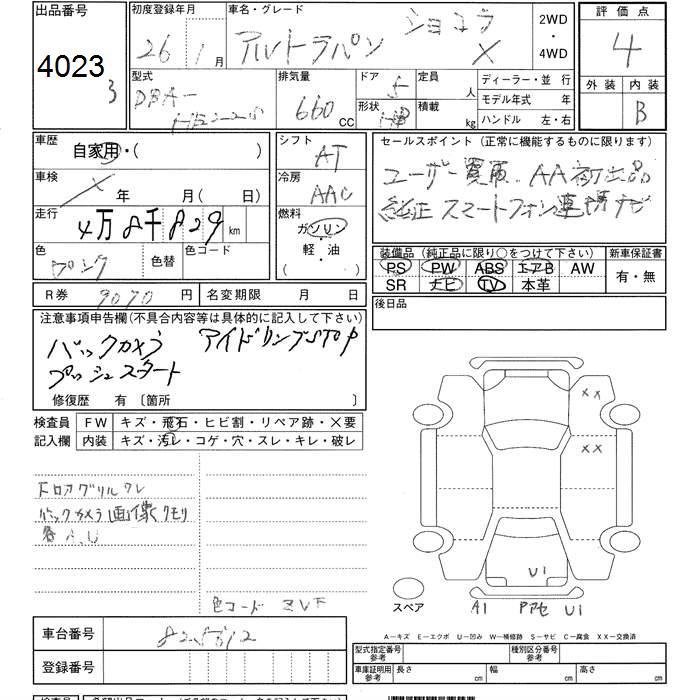 出品番号 初度登録年月 車名・グレード ショコラ 2WD ・ 4WD 評価点
4023 26 1月 アルトラパン X 4
3
型式 排気量 ドア 5 定員 人 ディーラー・並 行 外装 内装
DBA- 660 CC 形状 積載 kg モデル年式 年 B
ハンドル 左・右
車歴 自家用・( ) シフト AT セールスポイント (正常に機能するものに限ります)
車検 年 月( 日) 冷房 AAC ユーザー買取 AA初出品
走行 4万8千829 km 燃料 ガソリン 軽・油 純正スマートフォン連携ナビ
色 ピンク 色替 色コード 装備品 (純正品に限り○をつけて下さい) 新車保証書
PS PW ABS エアB AW 有・無
SR ナビ TV 本革
R券 9070 円 名変期限 月 日 後日品
注意事項申告欄(不具合内容等は具体的に記入して下さい)
バックカメラ アイドリングSTOP
プッシュスタート
修復歴 有 〔箇所 〕
検査員 FW キズ・飛石・ヒビ割・リペア跡・×要
記入欄 内装 キズ・汚れ・コゲ・穴・スレ・キレ・破レ
XX
XX
フロアグリルワレ
バックカメラ画像クモリ
各A.U
U1
スペア A1 Pアセ U1
A−キズ E−エクボ U−凹み W−補修跡 S−サビ C−腐食 XX−交換済
車台番号
登録番号
型式指定番号 参考 種別区分番号 参考
車庫証明用 参考 長さ 幅 高さ